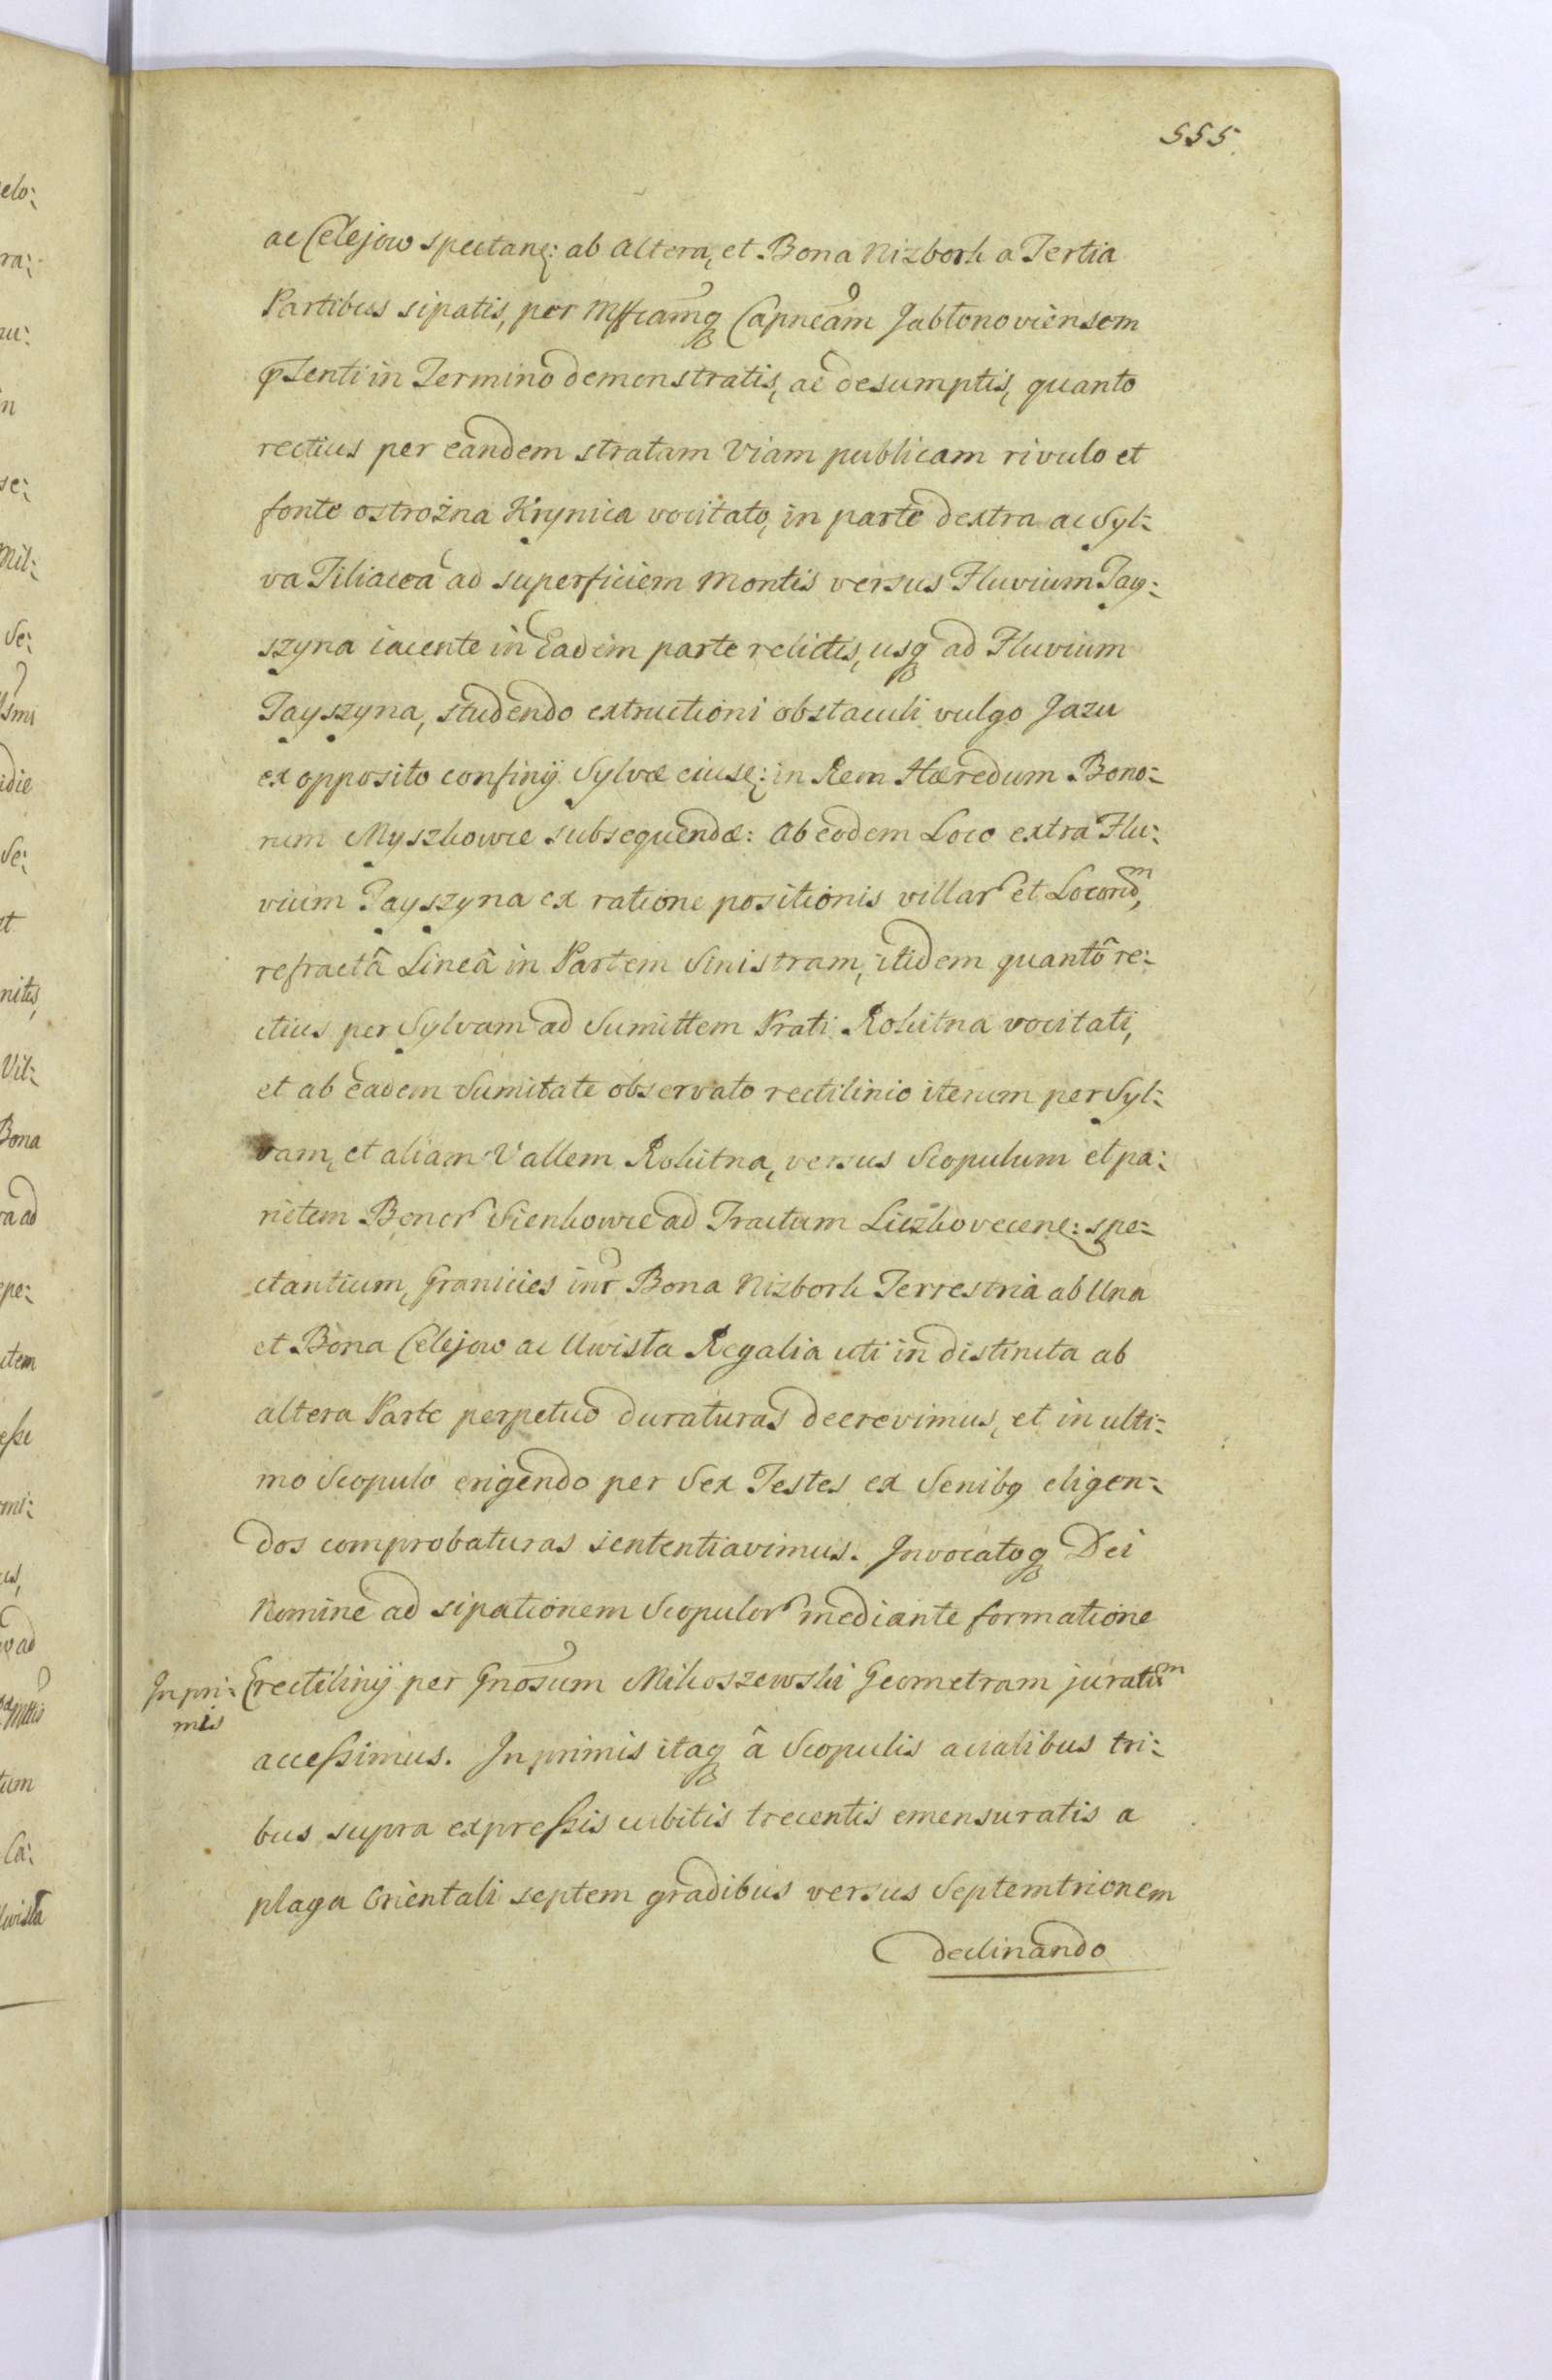 555.
ac Celejow spectanę: ab altera, et Bona Nizbork a Tertia
Partibus sipatis, per Mffcamq̃ Capneam Jabłonoviensem
in Termino demonstratis, ac desumptis, quanto
rectius per eandem stratam Viam publicam rivulo et
fonte ostrożna Krynica vocitato, in parte dextra ac Syl:
va Tiliacea ad superficiem Montis versus Fluvium Tay:
szyna iacente in Eadem parte relictis, usq ad Fluvium
Tayszyna, studendo extructioni obstaculi vulgo Jazu
ex opposito confinij Sylvæ eiusę: in Rem Hæredum Bono:
rum Myszkowce subsequendæ: Ab eodem Loco extra Flu:
vium Tayszyna ex ratione positionis villar et Locorum,
refractâ Lineâ in Partem Sinistram, itidem quantô re:
ctius per Sylvam ad Sumittem Prati Rokitna vocitati,
et ab eadem Sumitate observato rectilinio iterum per Syl:
vam, et aliam Vallem Rokitna, versus Scopulum et pa:
rietem Bonor Sienkowce ad Tractum Liczkovecenę: spe:
ctantium, Granicies int Bona Nizbork Terrestria ab Una
et Bona Celejow ac Uwisła Regalia uti indistincta ab
altera Parte perpetuo duraturas decrevimus, et in ulti:
mo Scopulo erigendo per Sex Testes ex Senibq eligen:
dos comprobaturas sententiavimus. Invocatoq Dei
Nomine ad sipationem Scopulor mediante formatione
Inpri: rectilinij per Gnosum Mikoszewski Geometram juratum
mis
accessimus. Inprimis itaq â Scopulis acialibus tri:
bus supra expressis cubitis trecentis emensuratis a
plaga Orientali septem gradibus versus Septemtrionem
declinando